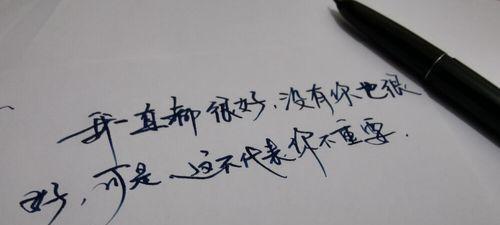 我一直都很好,没有你也很
好,可是这不代表你不重要.